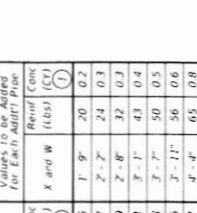 Values to be Added
for Each Add'l Pipe
X and W Reinf (Lbs) Conc (CY) 1
1'-9" 20 0.2
2'-2" 24 0.3
2'-8" 32 0.3
3'-1" 43 0.4
3'-7" 50 0.5
3'-11" 56 0.6
4'-4" 65 0.8